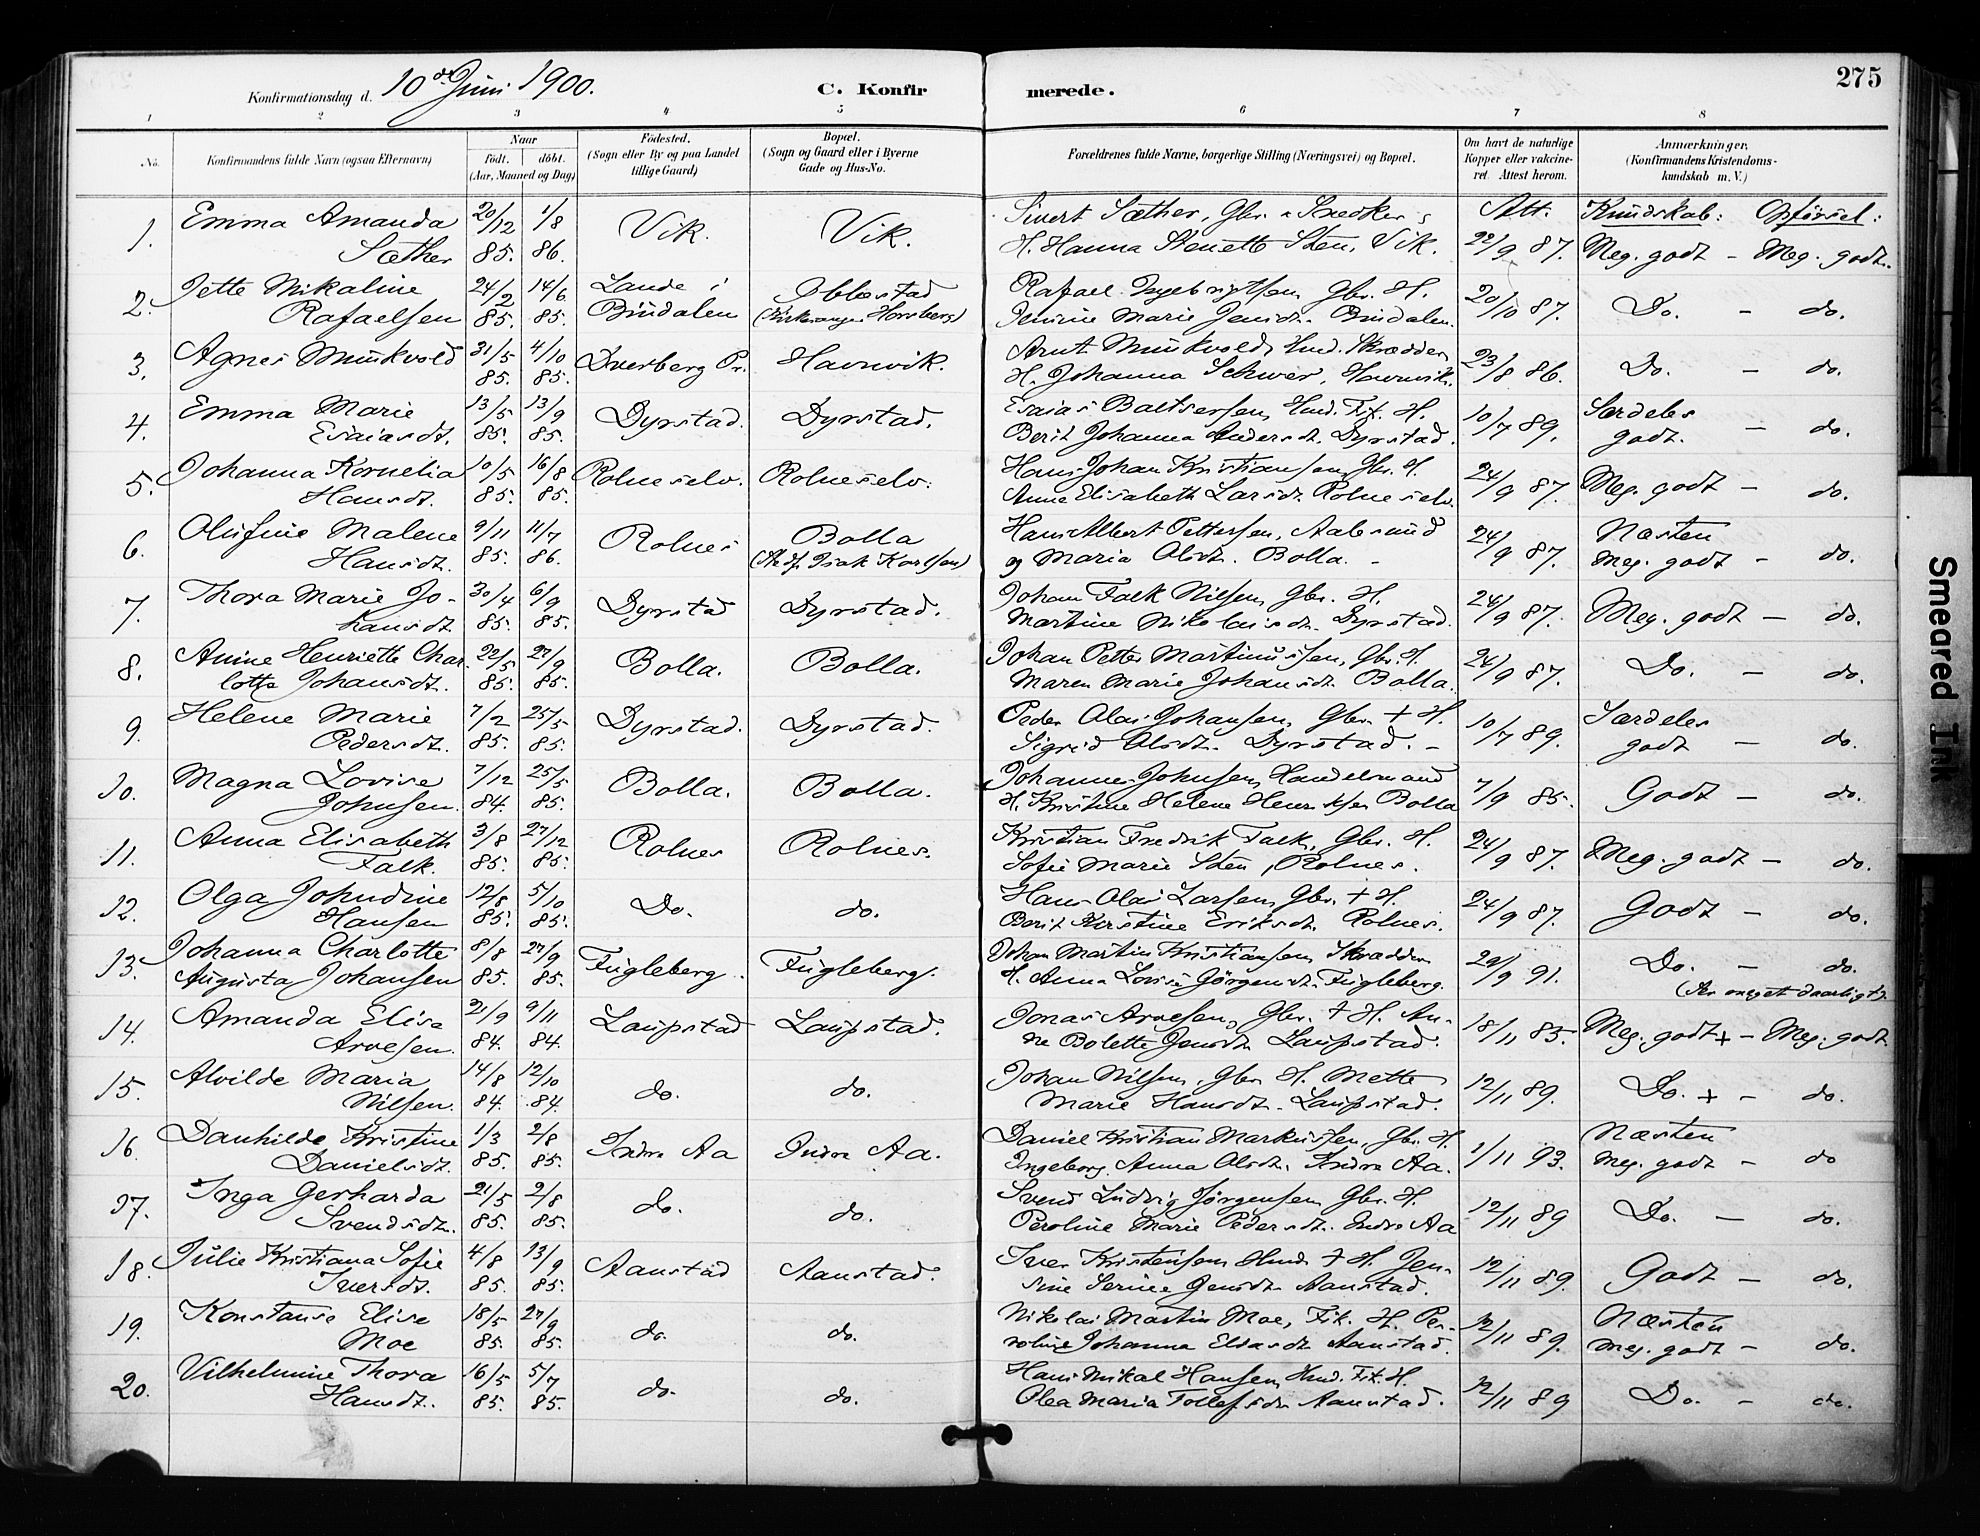 275
Konfirmationsdag d. 10de Juni 1900.
C. Konfirmerede.
1 2 3 4 5 6 7 8
No.
Konfirmandens fulde Navn (ogsaa Efternavn)
Naar
født. døbt.
(Aar, Maaned og Dag)
Fødested.
(Sogn eller By og paa Landet
tillige Gaard)
Bopæl.
(Sogn og Gaard eller i Byerne
Gade og Hus-No.
Forældrenes fulde Navne, borgerlige Stilling (Næringsvei) og Bopæl.
Om havt de naturlige
Kopper eller vakcine-
ret. Attest herom.
Anmærkninger.
(Konfirmandens Kristendoms-
kundskab m. V.)
1. Emma Amanda 20/12 1/8 Vik. Vik. Sivert Sæther, Gbr. Att. Kundskab: Opførsel:
Sæther 85. 86. H. Hanna Sten, Vik. 22/9 87. Meg. godt - Meg. godt.
2. Jette Mikaline 24/2 14/6 Lande i Ibbestad Rafael Ingebrigtsen Gbr. H. 20/10 87. Do. - do.
Rafaelsen 85. 85. Bindalen Marie Jensdt. Bindalen.
3. Agnes Munkvold 31/5 4/10 Dverberg Pr. Havnvik. Arnt Munkvold, Hmd. Skrædder 23/8 86. Do. - do.
85. 85. H. Johanna Havnvik.
4. Emma Marie 13/5 13/9 Dyrstad. Dyrstad. Esaias Baltsersen, Hmd. Fisk. H. 10/7 89. Særdeles
Esaiasdt. 85. 85. Berit Johanna Andersdt. Dyrstad. godt. - do.
5. Johanna Kornelia 10/5 16/8 Rolneselv. Rolneselv. Hans Johan Kristiansen Gbr. H. 24/9 87. Meg. godt - do.
Hansdt. 85. 85. Anne Elisabeth Larsdt. Rolneselv.
6. Olufine Malene 9/11 11/7 Rolnes Bolla Hans Albert Pettersen, Aalesund 24/9 87. Næsten
Hansdt. 85. 86. Isak Karlsen) og Maria Olsdt. Bolla. - meg. godt - do.
7. Thora Marie Jo- 30/4 6/9 Dyrstad Dyrstad. Johan Falk Nilsen, Gbr. H. 24/9 87. Meg. godt - do.
hansdt. 85. 85. Martine Nikolaisdt. Dyrstad.
8. Anine Henriette Char- 22/5 27/9 Bolla. Bolla. Johan Petter Martinussen, Gbr. H. 24/9 87. Do. - do.
lotte Johansdt. 85. 85. Maren Marie Johansdt. Bolla.
9. Helene Marie 7/2 25/5 Dyrstad. Dyrstad. Peder Olai Johansen, Gbr. + H. 10/7 89. Særdeles
Pedersdt. 85. 85. Sigrid Olsdt. Dyrstad. - godt - do.
10. Magna Lovise 7/12 25/5 Bolla. Bolla. Johannes Johnsen, Handelsmand 7/9 85. Godt - do.
Johnsen. 84. 85. H. Kristine Helene Bolla
11. Anna Elisabeth 3/8 27/12 Rolnes Rolnes. Kristian Fredrik Falk, Gbr. H. 24/9 87. Meg. godt - do.
Falk. 85. 85. Sofie Marie Sten, Rolnes.
12. Olga Johndine 12/8 5/10 Do. do. Hans Olai Larsen, Gbr. + H. 24/9 87. Godt - do.
Hansen 85. 85. Berit Kirstine Eriksdt. Rolnes.
13. Johanna Charlotte 8/8 27/9 Fugleberg. Fugleberg. Johan Martin Kristiansen, Skrædder 29/9 91. Do. - do.
Augusta Johansen 85. 85. H. Anna Lovise Jørgensdt. Fugleberg. daarligt).
14. Amanda Elise 21/9 9/11 Laupstad Laupstad. Jonas Arvesen, Gbr. + H. An- 18/11 85. Meg. godt + - Meg. godt
Arvesen. 84. 84. ne Bolette Jensdt. Laupstad.
15. Alvilde Maria 14/8 12/10 do. do. Johan Nilsen, Gbr. H. Mette 12/11 89. Do. + - do.
Nilsen. 84. 84. Marie Hansdt. Laupstad.
16. Danhilde Kristine 1/3 2/8 Indre Aa Indre Aa. Daniel Kristian Markussen, Gbr. H. 1/11 93. Næsten
Danielsdt. 85. 85. Ingeborg Anna Olsdt. Indre Aa. meg. godt - do
17. Inga Gerharda 21/5 2/8 do. do. Svend Ludvig Jørgensen, Gbr. H. 12/11 89 Do. - do.
Svendsdt. 85. 85. Peroline Marie Pedersdt. Indre Aa
18. Julie Kristiana Sofie 4/8 13/9 Aanstad Aanstad. Iver Kristensen, Hmd. + H. Jen- 12/11 89. Godt - do.
Iversdt. 85. 85. sine Serine Jensdt. Aanstad.
19. Konstanse Elise 18/5 27/9 do. do. Nikolai Martin Moe, Fisk. H. Pe- 12/11 89. Næsten
Moe 85. 85. roline Johanna Eliasdt. Aanstad. meg. godt - do.
20. Vilhelmine Thora 16/5 5/7 do. do. Hans Mikal Hansen, Hmd. Fisk. H. 12/11 89 Do. - do.
Hansdt. 85. 85. Olea Maria Tollefsdt. Aanstad.
Smeared Ink